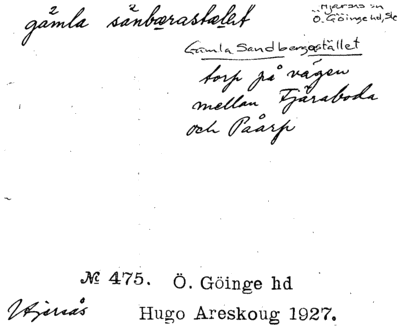 gamla sanbærastælet
Hjärsås sn
Ö. Göinge hd, Sk
Gamla Sandbergastället
torp på vägen
mellan Fjäraboda
och Påarp
№ 475. Ö. Göinge hd
Hjersås Hugo Areskoug 1927.